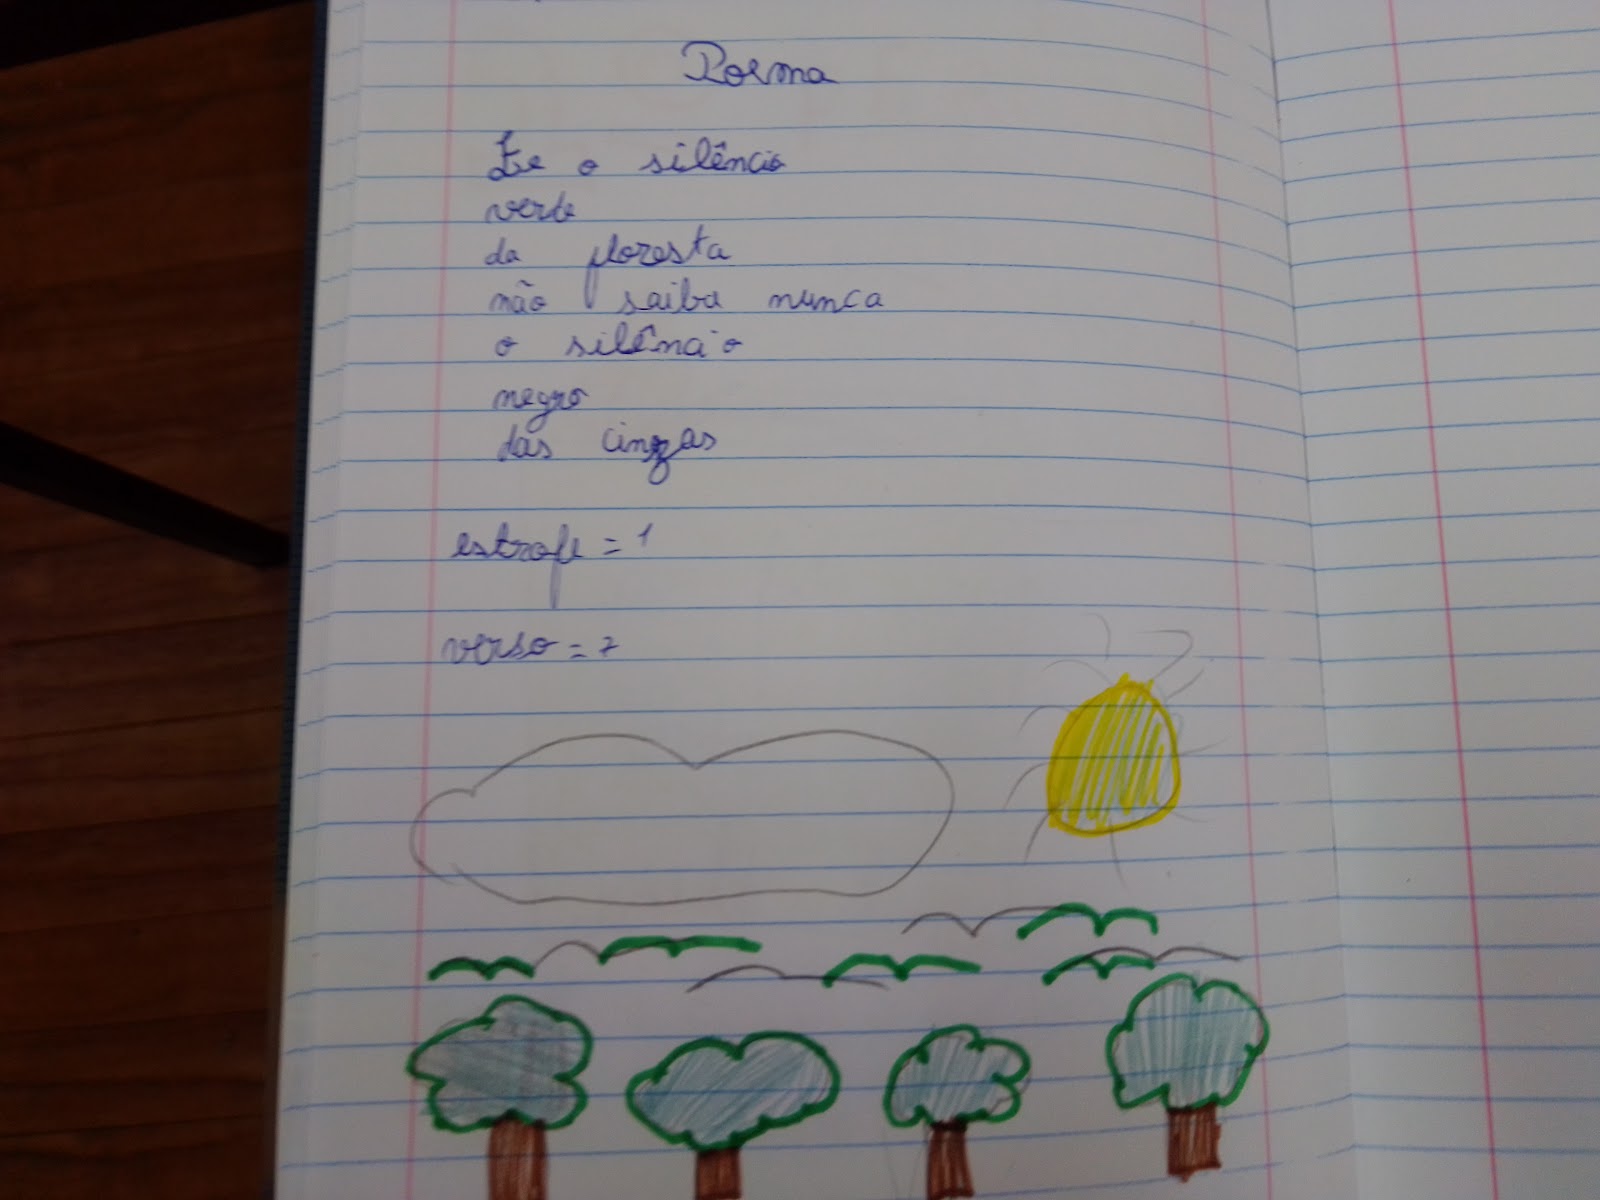 Poema
Ee o silêncio
verde
da floresta
não saiba nunca
o silêncio
negro
das cinzas
estrofe = 1
verso = 7